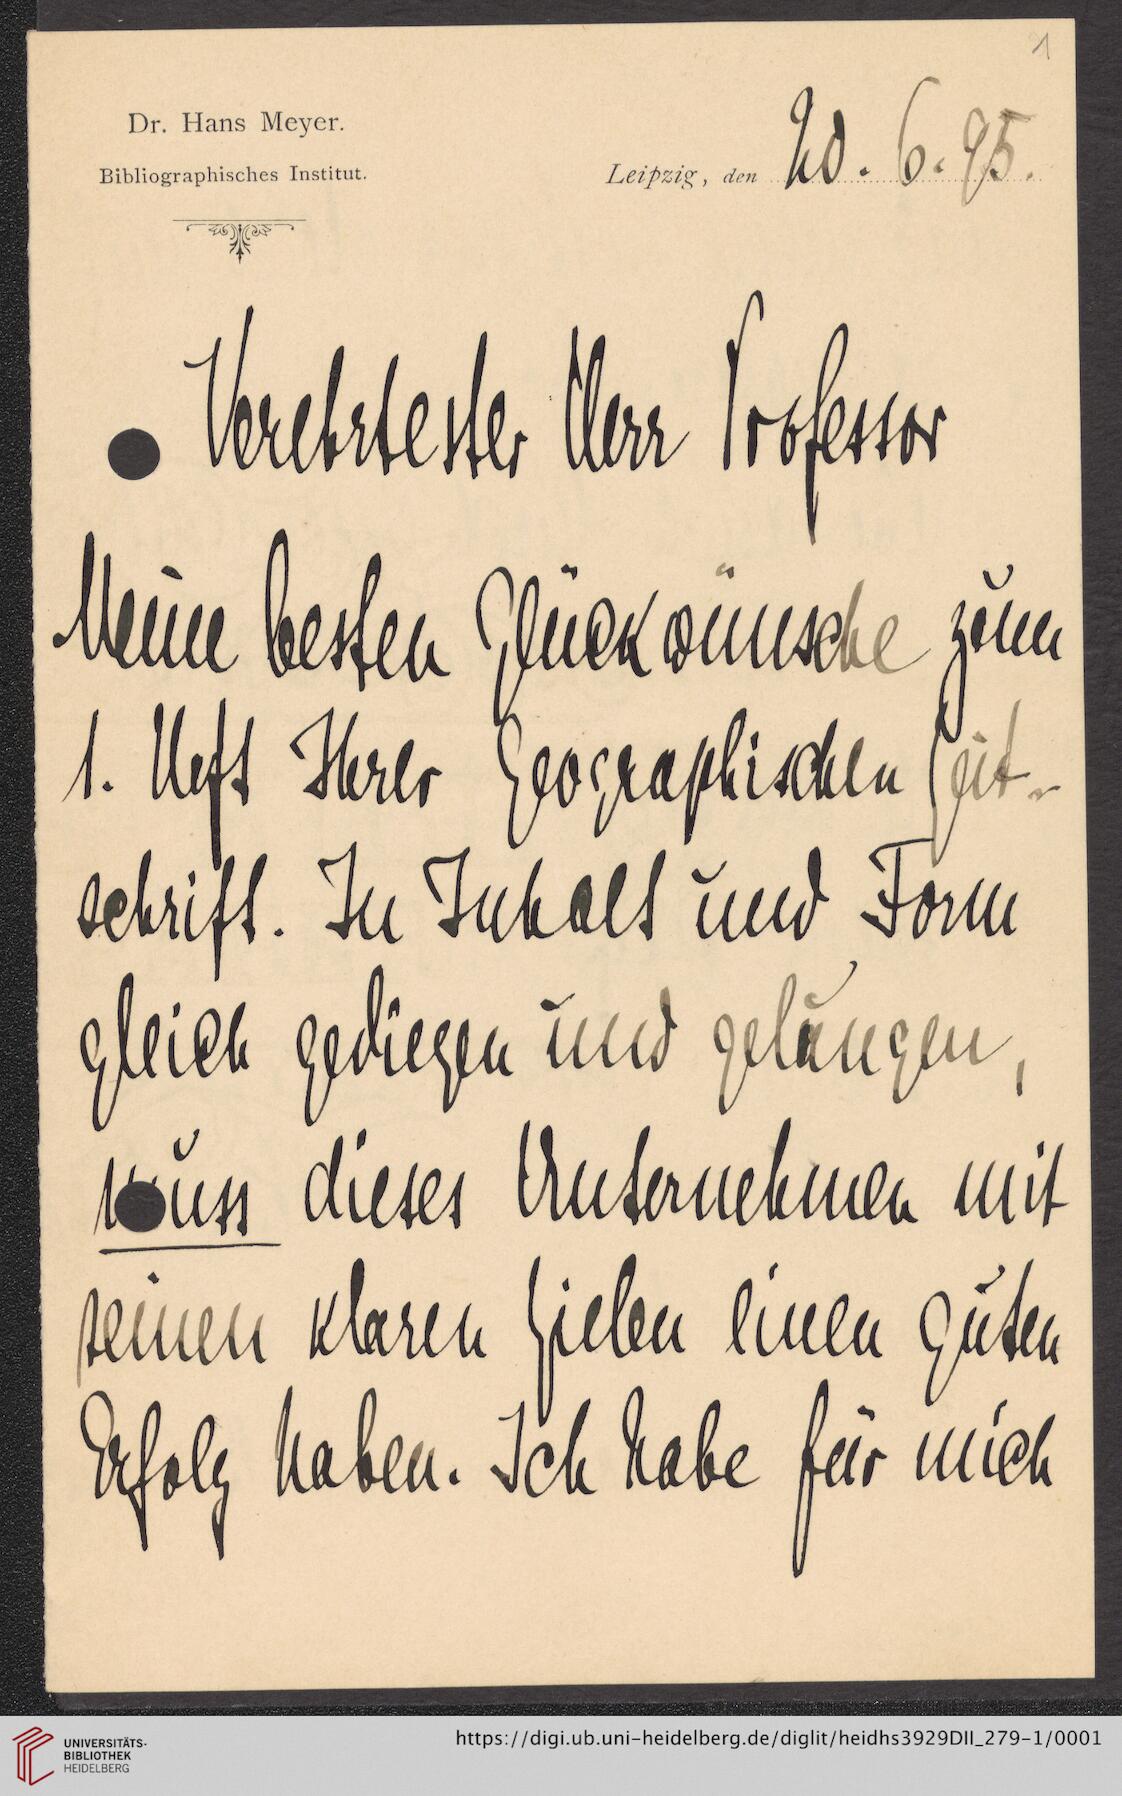 1
Dr. Hans Meyer.
Bibliographisches Institut.
Leipzig, den 20. 6. 95.
Verehrtester Herr Professor
Meine besten Glückwünsche zum
1. Heft Ihrer Geographischen Zeit-
schrift. In Inhalt und Form
gleich gediegen und gelungen,
muss dieses Unternehmen mit
seinen klaren Zielen einen guten
Erfolg haben. Ich habe für mich
UNIVERSITÄTS-
BIBLIOTHEK
HEIDELBERG
https://digi.ub.uni-heidelberg.de/diglit/heidhs3929DII_279-1/0001